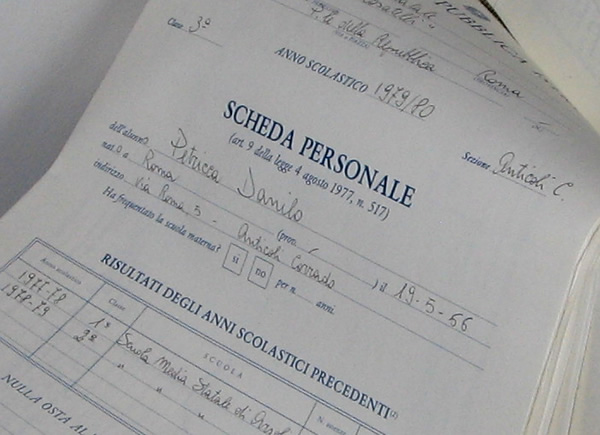 PUBBLICA
P.le della Repubblica Roma
Classe 3ª
ANNO SCOLASTICO 1979/80
Sezione Anticoli C.
SCHEDA PERSONALE
(art. 9 della legge 4 agosto 1977, n. 517)
dell'alunno Petricca Danilo
nat.o a Roma (prov. ) il 19-5-66
indirizzo via Roma, 5 - Anticoli Corrado
Ha frequentato la scuola materna? si no per n. anni.
RISULTATI DEGLI ANNI SCOLASTICI PRECEDENTI(2)
Anno scolastico Classe SCUOLA
1977-78 1ª Scuola Media Statale di
1978-79 2ª " " "
NULLA OSTA AL